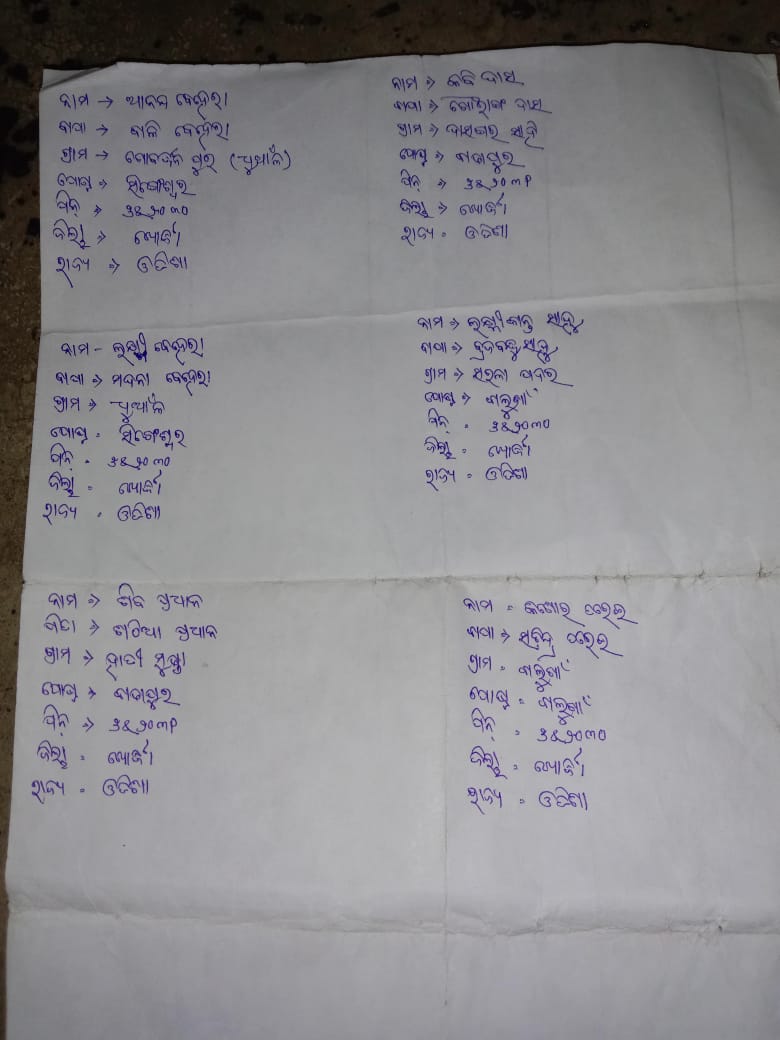 ନାମ → ଆଦନ ବେହେରା
ବାପା → ବାଳି ବେହେରା
ଗ୍ରାମ → ଗୋବର୍ଦ୍ଧନ ପୁର (ଧୁଆଁଳି)
ପୋଷ୍ଟ ⇒ ସିଙ୍ଗେଶ୍ୱର
ପିନ୍ ⇒ ୭୫୨୦୩୦
ଜିଲ୍ଲା ⇒ ଖୋର୍ଦ୍ଧା
ରାଜ୍ୟ ⇒ ଓଡିଶା
ନାମ ⇒ କବି ଦାସ
ବାପା ⇒ ଗୌରାଙ୍ଗ ଦାସ
ଗ୍ରାମ ⇒ ଦାସଘର ସାହି
ପୋଷ୍ଟ ⇒ ବାଙ୍କପୁର
ପିନ୍ ⇒ ୭୫୨୦୩୧
ଜିଲ୍ଲା ⇒ ଖୋର୍ଦ୍ଧା
ରାଜ୍ୟ = ଓଡିଶା
ନାମ - ଲକ୍ଷ୍ମୀ ବେହେରା
ବାପା ⇒ ମଦନା ବେହେରା
ଗ୍ରାମ ⇒ ଧୁଆଁଳି
ପୋଷ୍ଟ = ସିଙ୍ଗେଶ୍ୱର
ପିନ୍ = ୭୫୨୦୩୦
ଜିଲ୍ଲା = ଖୋର୍ଦ୍ଧା
ରାଜ୍ୟ = ଓଡିଶା
ନାମ ⇒ ଲକ୍ଷ୍ମୀକାନ୍ତ ସାହୁ
ବାପା ⇒ ବ୍ରଜବନ୍ଧୁ ସାହୁ
ଗ୍ରାମ ⇒ ସରଳା ପଦର
ପୋଷ୍ଟ ⇒ ବାଲୁଗାଁ
ପିନ୍ = ୭୫୨୦୩୦
ଜିଲ୍ଲା = ଖୋର୍ଦ୍ଧା
ରାଜ୍ୟ = ଓଡିଶା
ନାମ ⇒ ଶିବ ପ୍ରଧାନ
ପିତା ⇒ ଶଠିଆ ପ୍ରଧାନ
ଗ୍ରାମ ⇒ ହାତୀ ମୁଣ୍ଡା
ପୋଷ୍ଟ ⇒ ବାଙ୍କପୁର
ପିନ୍ ⇒ ୭୫୨୦୩୧
ଜିଲ୍ଲା = ଖୋର୍ଦ୍ଧା
ରାଜ୍ୟ = ଓଡିଶା
ନାମ = କିଶୋର ପରେଇ
ବାପା ⇒ ପରେଇ
ଗ୍ରାମ = ବାଲୁଗାଁ
ପୋଷ୍ଟ = ବାଲୁଗାଁ
ପିନ୍ = ୭୫୨୦୩୦
ଜିଲ୍ଲା = ଖୋର୍ଦ୍ଧା
ରାଜ୍ୟ = ଓଡିଶା